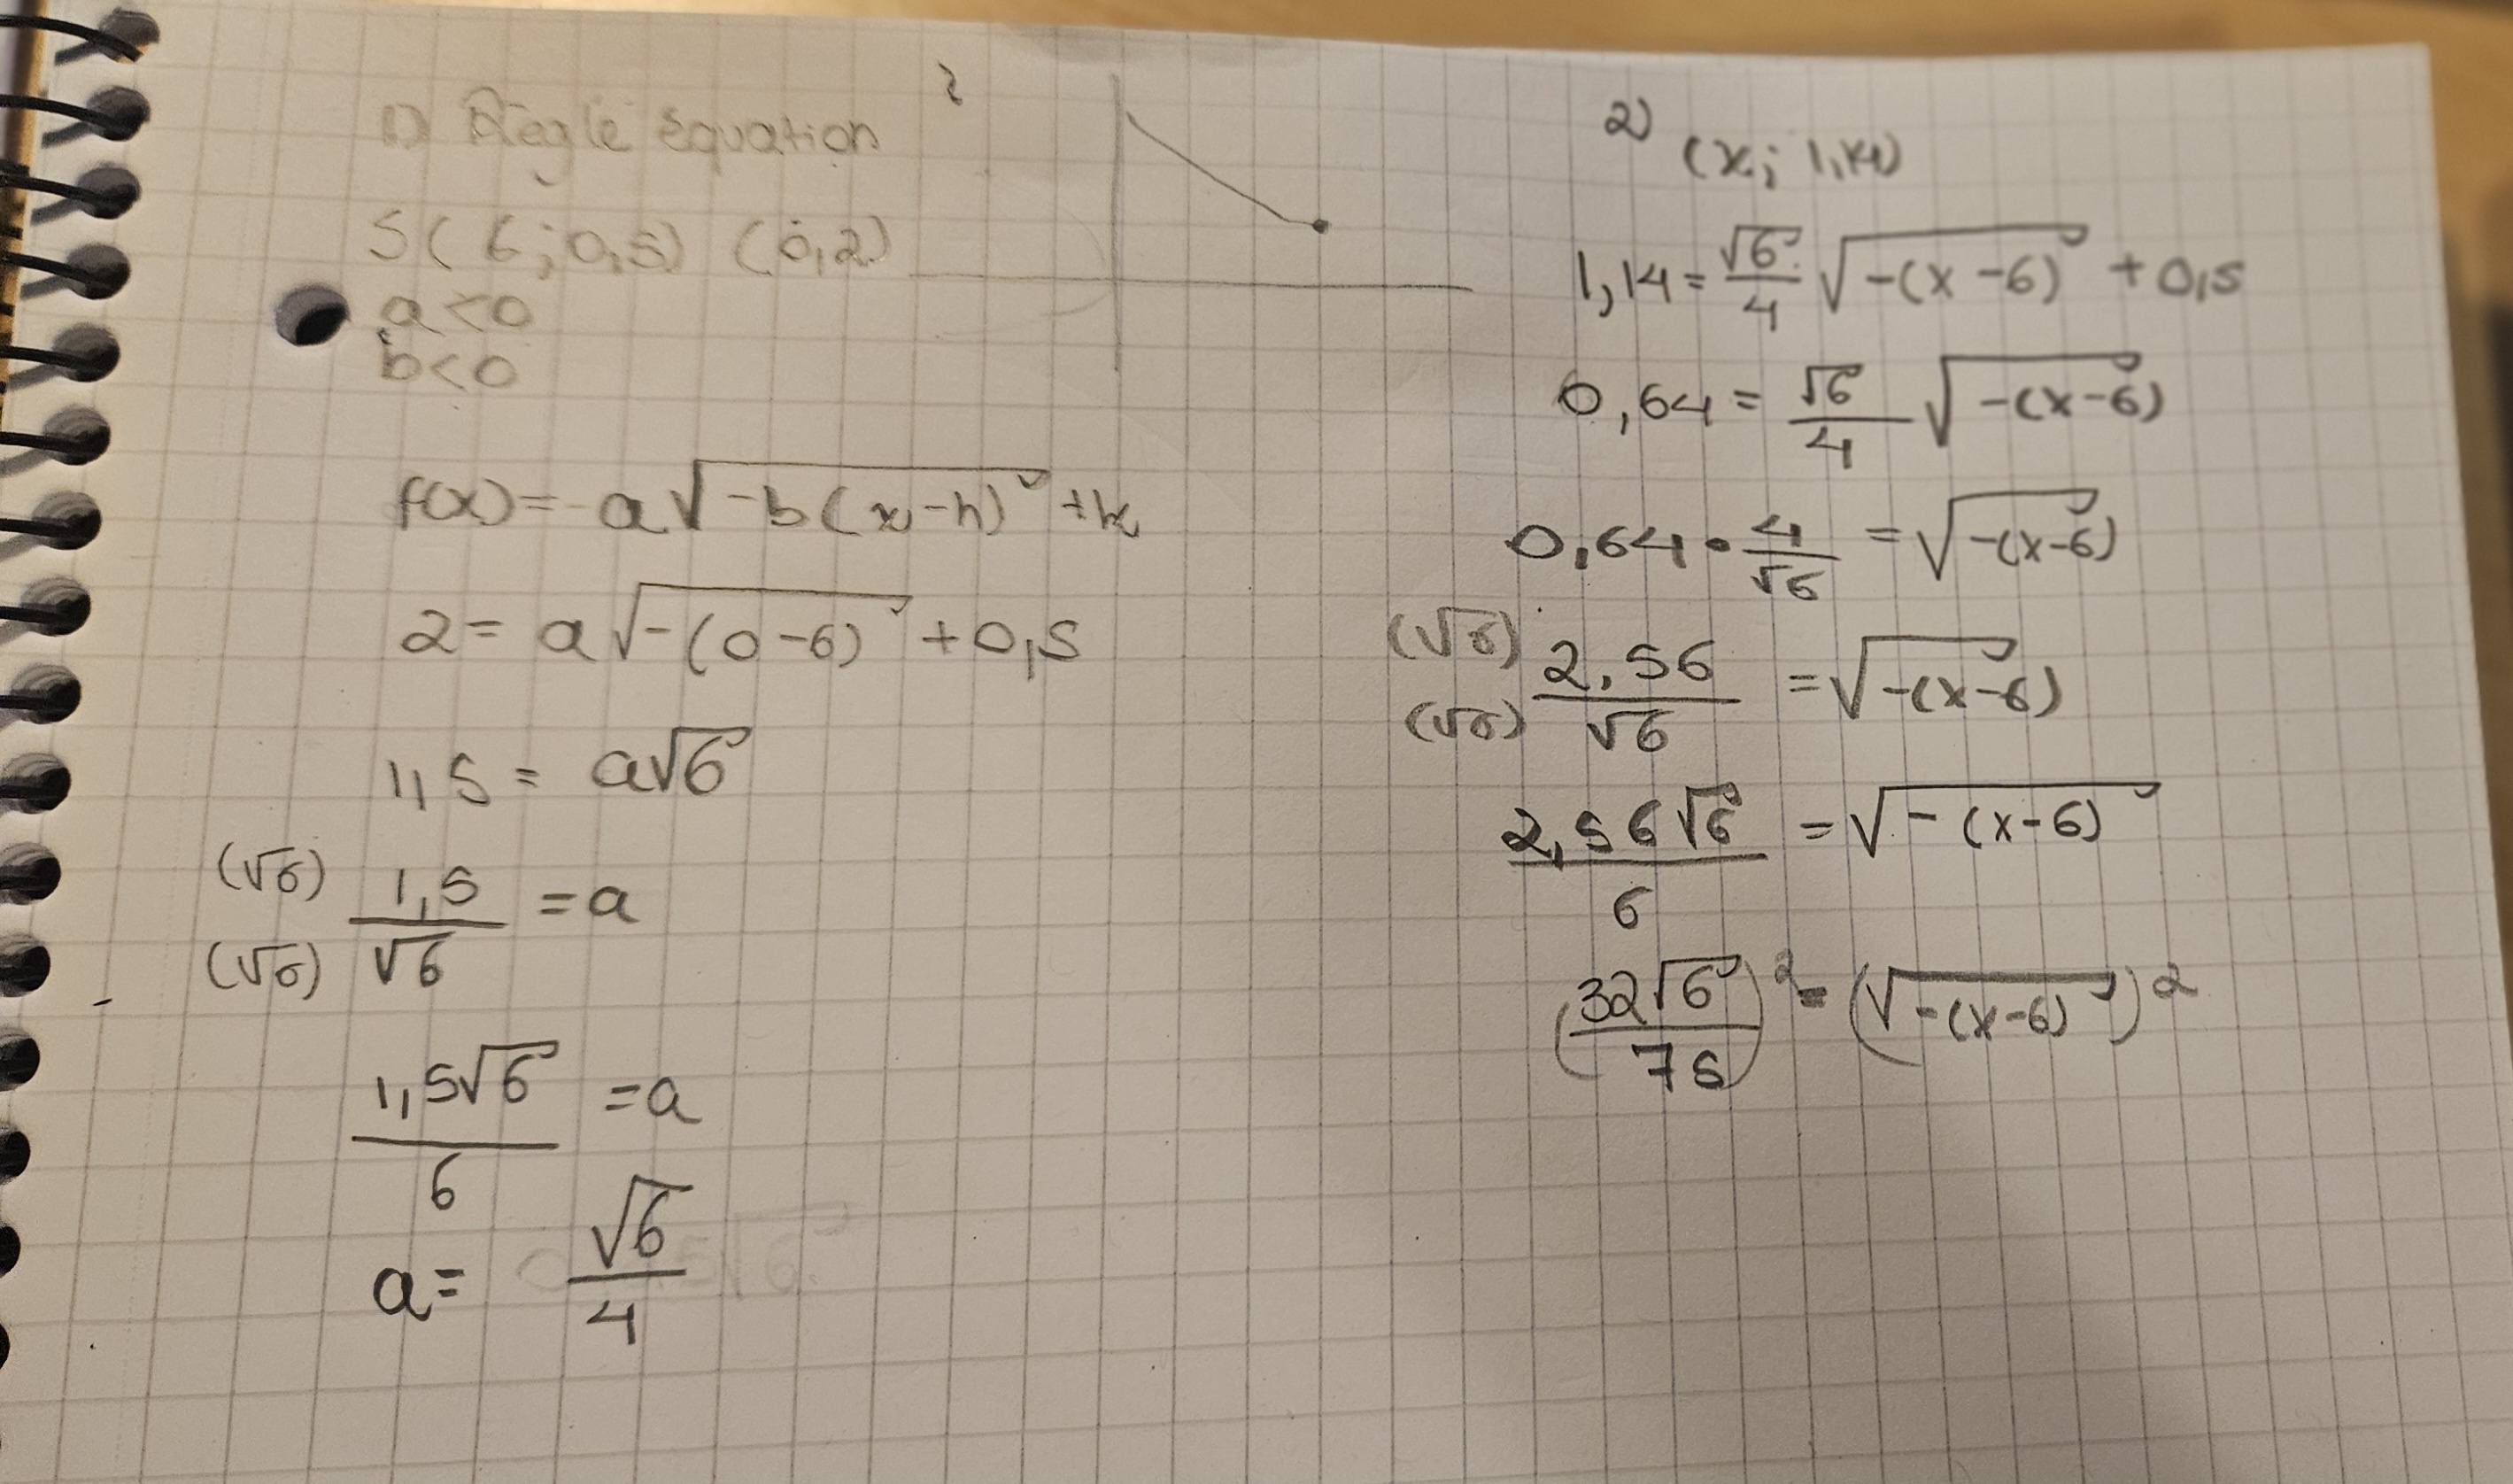 1) Règle équation ?
S(6;0,5) (0,2)
a<0
b<0
f(x)= a√-b(x-h) +k
2= a√-(0-6) +0,5
1,5 = a√6
(√6) 1,5
(√6) √6 =a
1,5√6
6 =a
a= √6
4
2) (x; 1,14)
1,14= √6/4 √-(x-6) +0,5
0,64 = √6/4 √-(x-6)
0,64 • 4/√6 = √-(x-6)
(√6) 2,56
(√6) √6 =√-(x-6)
2,56√6
6 =√-(x-6)
(32√6/75)² = (√-(x-6))²